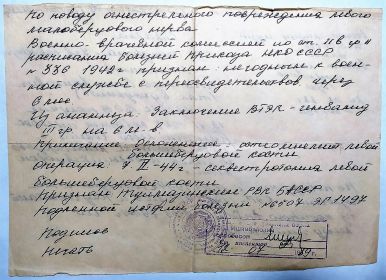 По поводу огнестрельного повреждения левого
малоберцового нерва.
Военно-врачебной комиссией по ст. 11 в гр II
расписания болезней приказа НКО СССР
№ 336 1942 г признан - негодным к воен-
ной службе с переосвидетельств через
6 мес.
Из анамнеза: Заключение ВТЭК - инвалид
III гр. на 6 м-в
Причинение осложнения - остеомиелит левой
большеберцовой кости
операция 4 IX-44г - секвестротомия левой
большеберцовой кости
Признан Туймазинским РВК БАССР
Подлинной истории болезни № 6607 ЭГ 1497
Подписи
Печать